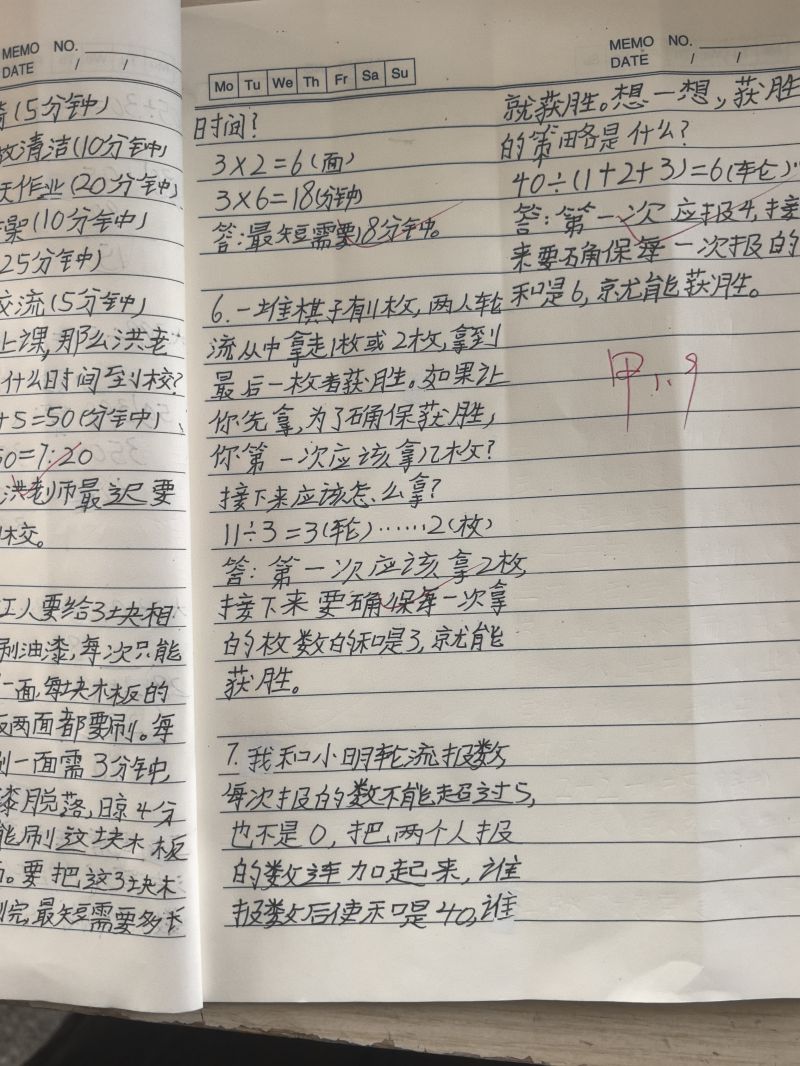 MEMO NO.
DATE / /
(5分钟)
清洁(10分钟)
作业(20分钟)
操(10分钟)
25分钟)
交流(5分钟)
上课,那么洪老
什么时间到校?
+5=50(分钟)
50=7:20
洪老师最迟要
校。
工人要给3块相
刷油漆,每次只能
一面,每块木板的
两面都要刷。每
刷一面需3分钟,
漆脱落,晾4分
能刷这块木板
。要把这3块木
刷完,最短需要多长
Mo Tu We Th Fr Sa Su
时间?
3×2=6(面)
3×6=18(分钟)
答:最短需要18分钟。
6.一堆棋子有11枚,两人轮
流从中拿走1枚或2枚,拿到
最后一枚者获胜。如果让
你先拿,为了确保获胜,
你第一次应该拿几枚?
接下来应该怎么拿?
11÷3=3(轮)……2(枚)
答:第一次应该拿2枚,
接下来要确保每一次拿
的枚数的和是3,就能
获胜。
7.我和小明轮流报数,
每次报的数不能超过5,
也不是0,把两个人报
的数连加起来,谁
报数后使和是40,谁
MEMO NO.
DATE / /
就获胜。想一想,获胜
的策略是什么?
40÷(1+2+3)=6(轮)…
答:第一次应报4,接
来要确保每一次报的
和是6,就能获胜。
甲 1.9